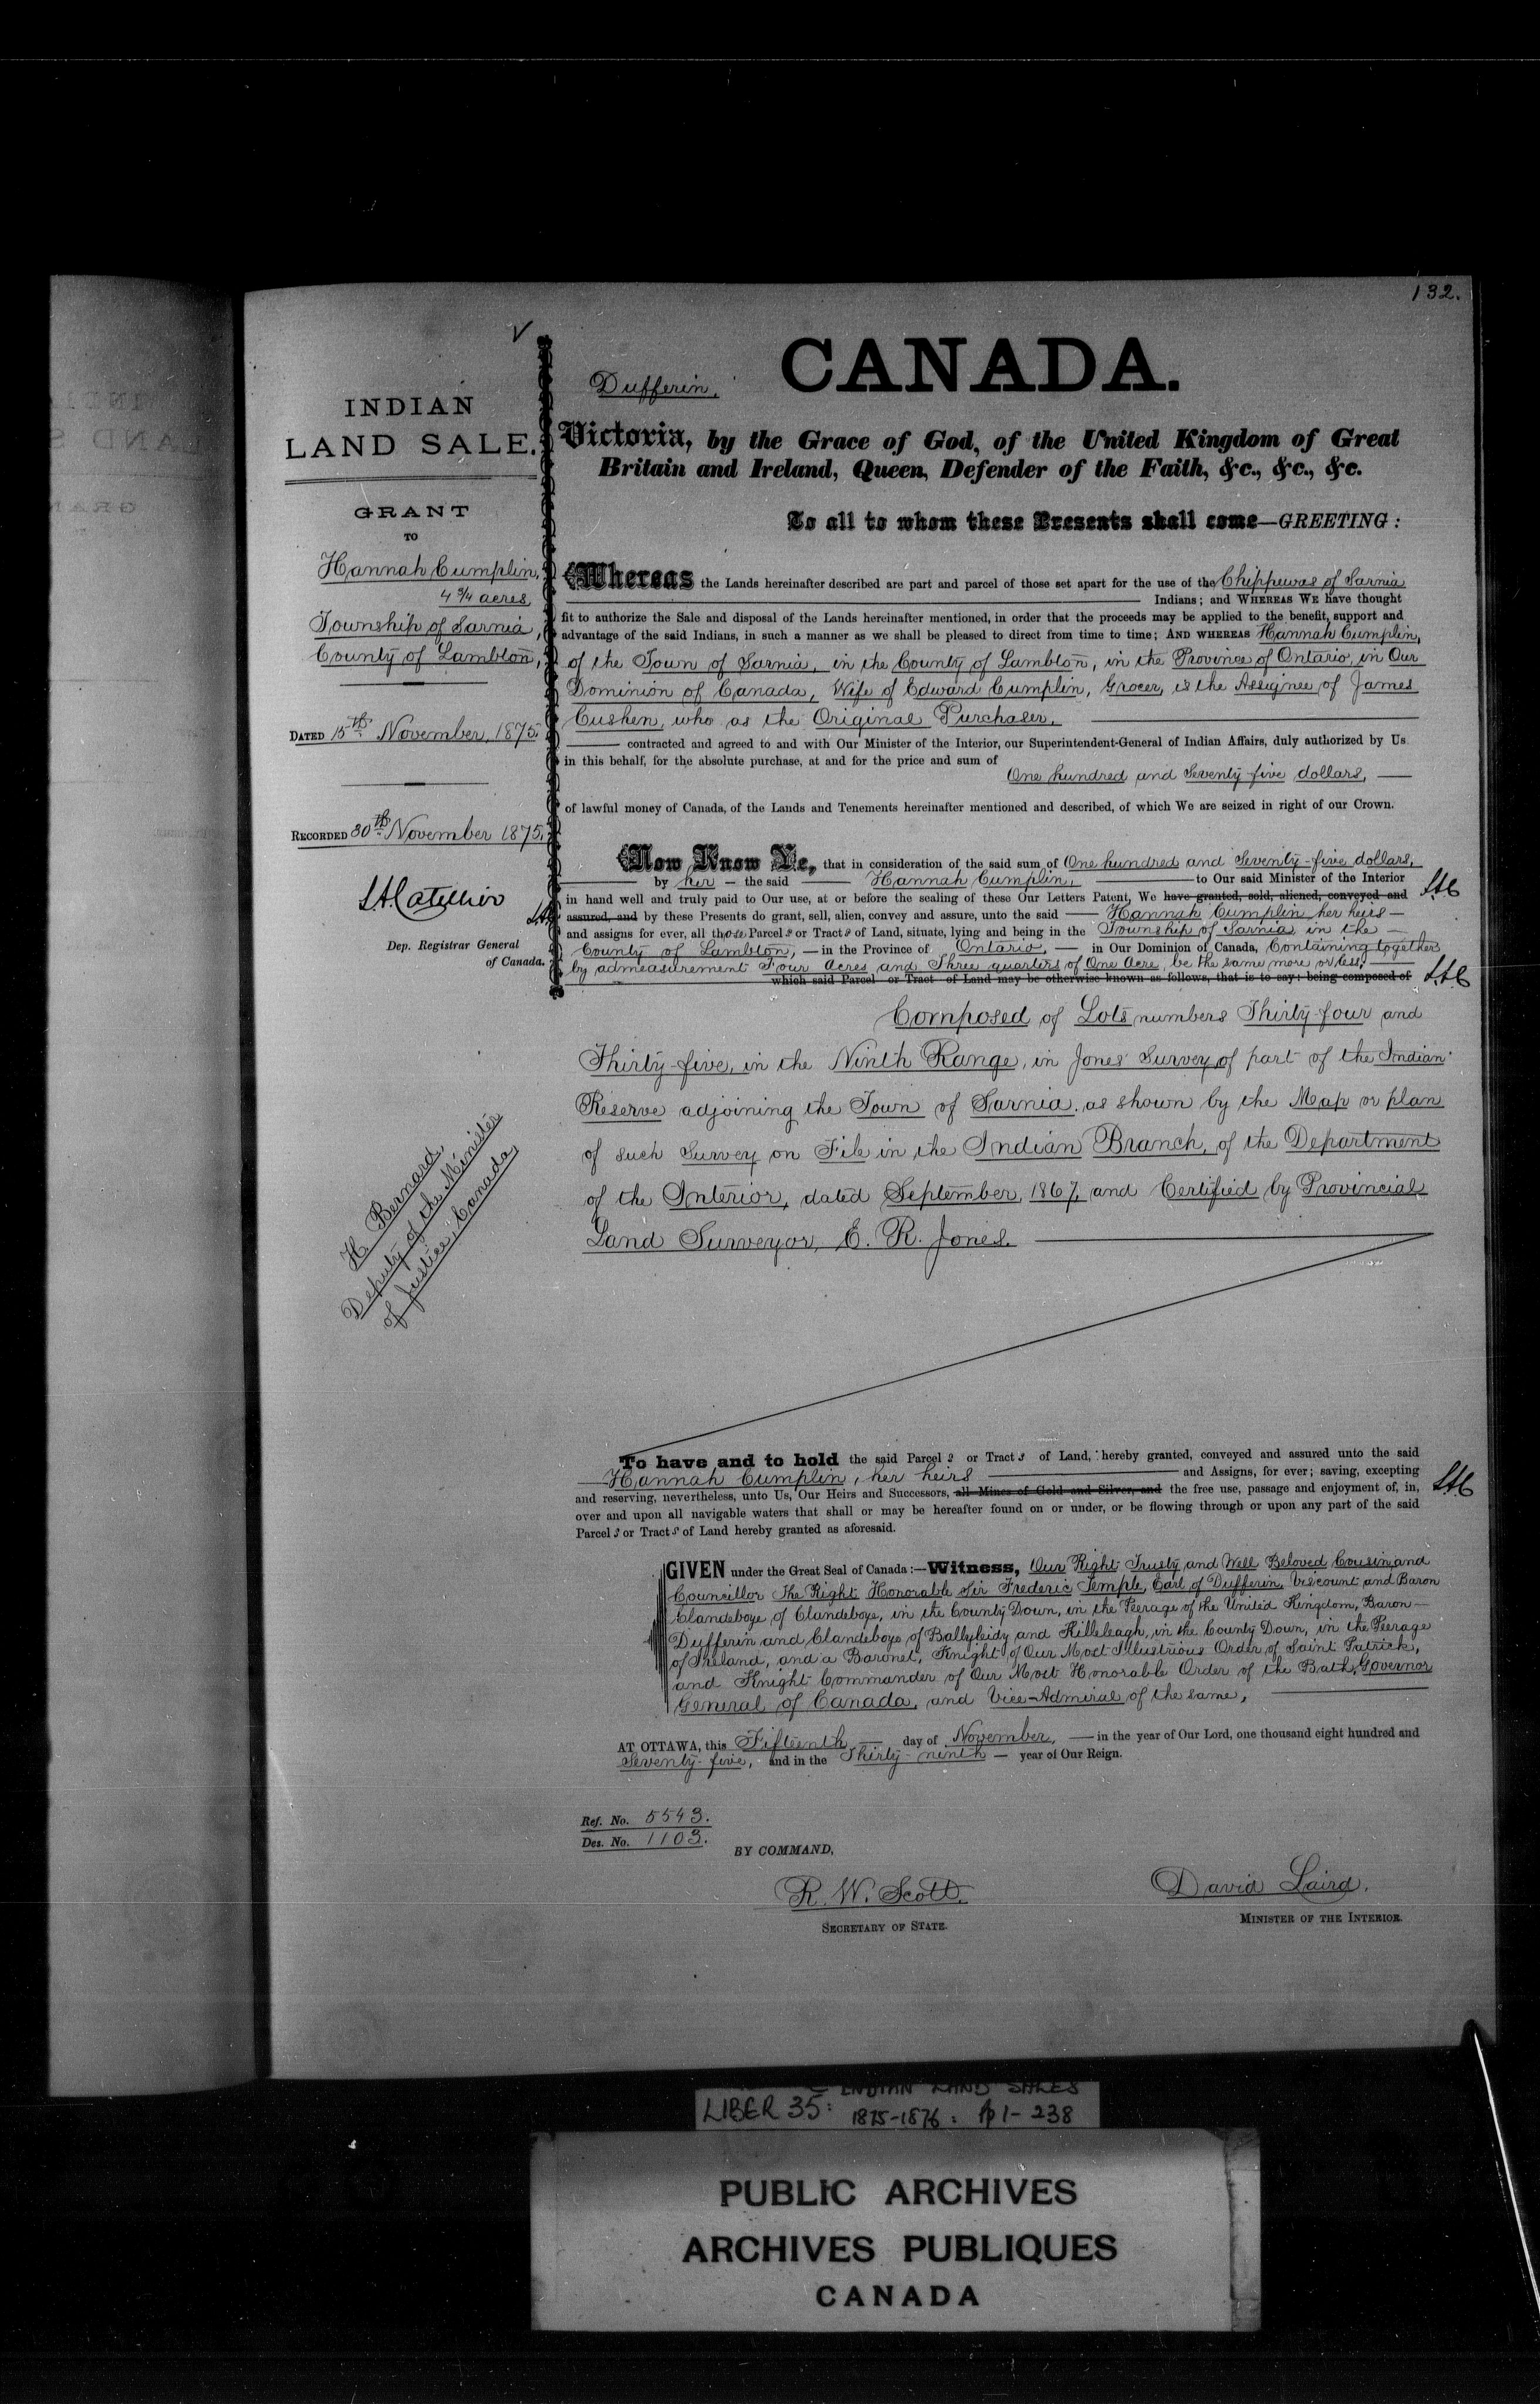 132.
CANADA.
Dufferin,
INDIAN
LAND SALE.
GRANT
TO
Hannah Cumplin,
4 3/4 acres
Township of Sarnia,
County of Lambton,
DATED 15th November, 1875.
RECORDED 30th November 1875,
Dep. Registrar General
of Canada.
H. Bernard,
Deputy of the Minister
of Justice, Canada
Victoria, by the Grace of God, of the United Kingdom of Great
Britain and Ireland, Queen, Defender of the Faith, &c., &c., &c.
To all to whom these Presents shall come—GREETING:
Whereas the Lands hereinafter described are part and parcel of those set apart for the use of the Chippewas of Sarnia
Indians; and WHEREAS WE have thought
fit to authorize the Sale and disposal of the Lands hereinafter mentioned, in order that the proceeds may be applied to the benefit, support and
advantage of the said Indians, in such a manner as we shall be pleased to direct from time to time; AND WHEREAS Hannah Cumplin,
of the Town of Sarnia, in the County of Lambton, in the Province of Ontario, in Our
Dominion of Canada, Wife of Edward Cumplin, Grocer, is the Assignee of James
Cushen, who as the Original Purchaser,
contracted and agreed to and with Our Minister of the Interior, our Superintendent-General of Indian Affairs, duly authorized by Us
in this behalf, for the absolute purchase, at and for the price and sum of
One hundred and Seventy-five dollars,
of lawful money of Canada, of the Lands and Tenements hereinafter mentioned and described, of which We are seized in right of our Crown.
Now Know Ye, that in consideration of the said sum of One hundred and Seventy-five dollars,
by her — the said Hannah Cumplin, to Our said Minister of the Interior
in hand well and truly paid to Our use, at or before the sealing of these Our Letters Patent, We have granted, sold, aliened, conveyed and
assured, and by these Presents do grant, sell, alien, convey and assure, unto the said — Hannah Cumplin her heirs —
and assigns for ever, all those Parcels or Tracts of Land, situate, lying and being in the Township of Sarnia in the —
County of Lambton, — in the Province of Ontario, — in Our Dominion of Canada, Containing together
by admeasurement Four Acres and Three quarters of One Acre, be the same more or less,
which said Parcel or Tract of Land may be otherwise known as follows, that is to say: being composed of
Composed of Lots numbers Thirty-four and
Thirty-five, in the Ninth Range, in Jones' Survey of part of the Indian
Reserve adjoining the Town of Sarnia. as shown by the Map or plan
of such Survey on File in the Indian Branch, of the Department
of the Interior, dated September, 1867, and Certified by Provincial
Land Surveyor, E. R. Jones.
To have and to hold the said Parcels or Tracts of Land, hereby granted, conveyed and assured unto the said
Hannah Cumplin, her heirs and Assigns, for ever; saving, excepting
and reserving, nevertheless, unto Us, Our Heirs and Successors, all Mines of Gold and Silver, and the free use, passage and enjoyment of, in,
over and upon all navigable waters that shall or may be hereafter found on or under, or be flowing through or upon any part of the said
Parcels or Tracts of Land hereby granted as aforesaid.
GIVEN under the Great Seal of Canada:—Witness, Our Right Trusty and Well Beloved Cousin and
Councillor The Right Honorable Sir Frederic Temple, Earl of Dufferin, Viscount and Baron
Clandeboye of Clandeboye, in the County Down, in the Peerage of the United Kingdom, Baron —
Dufferin and Clandeboye of Ballyleidy and Killeleagh, in the County Down, in the Peerage
of Ireland, and a Baronet, Knight of Our Most Illustrious Order of Saint Patrick,
and Knight Commander of Our Most Honorable Order of the Bath, Governor
General of Canada, and Vice-Admiral of the same,
AT OTTAWA, this Fifteenth — day of November, — in the year of Our Lord, one thousand eight hundred and
Seventy-five, and in the Thirty-ninth — year of Our Reign.
Ref. No. 5543.
Des. No. 1103.
BY COMMAND,
R. W. Scott.
SECRETARY OF STATE.
David Laird,
MINISTER OF THE INTERIOR.
INDIAN LAND SALES
LIBER 35: 1875-1876: pp 1-238
PUBLIC ARCHIVES
ARCHIVES PUBLIQUES
CANADA